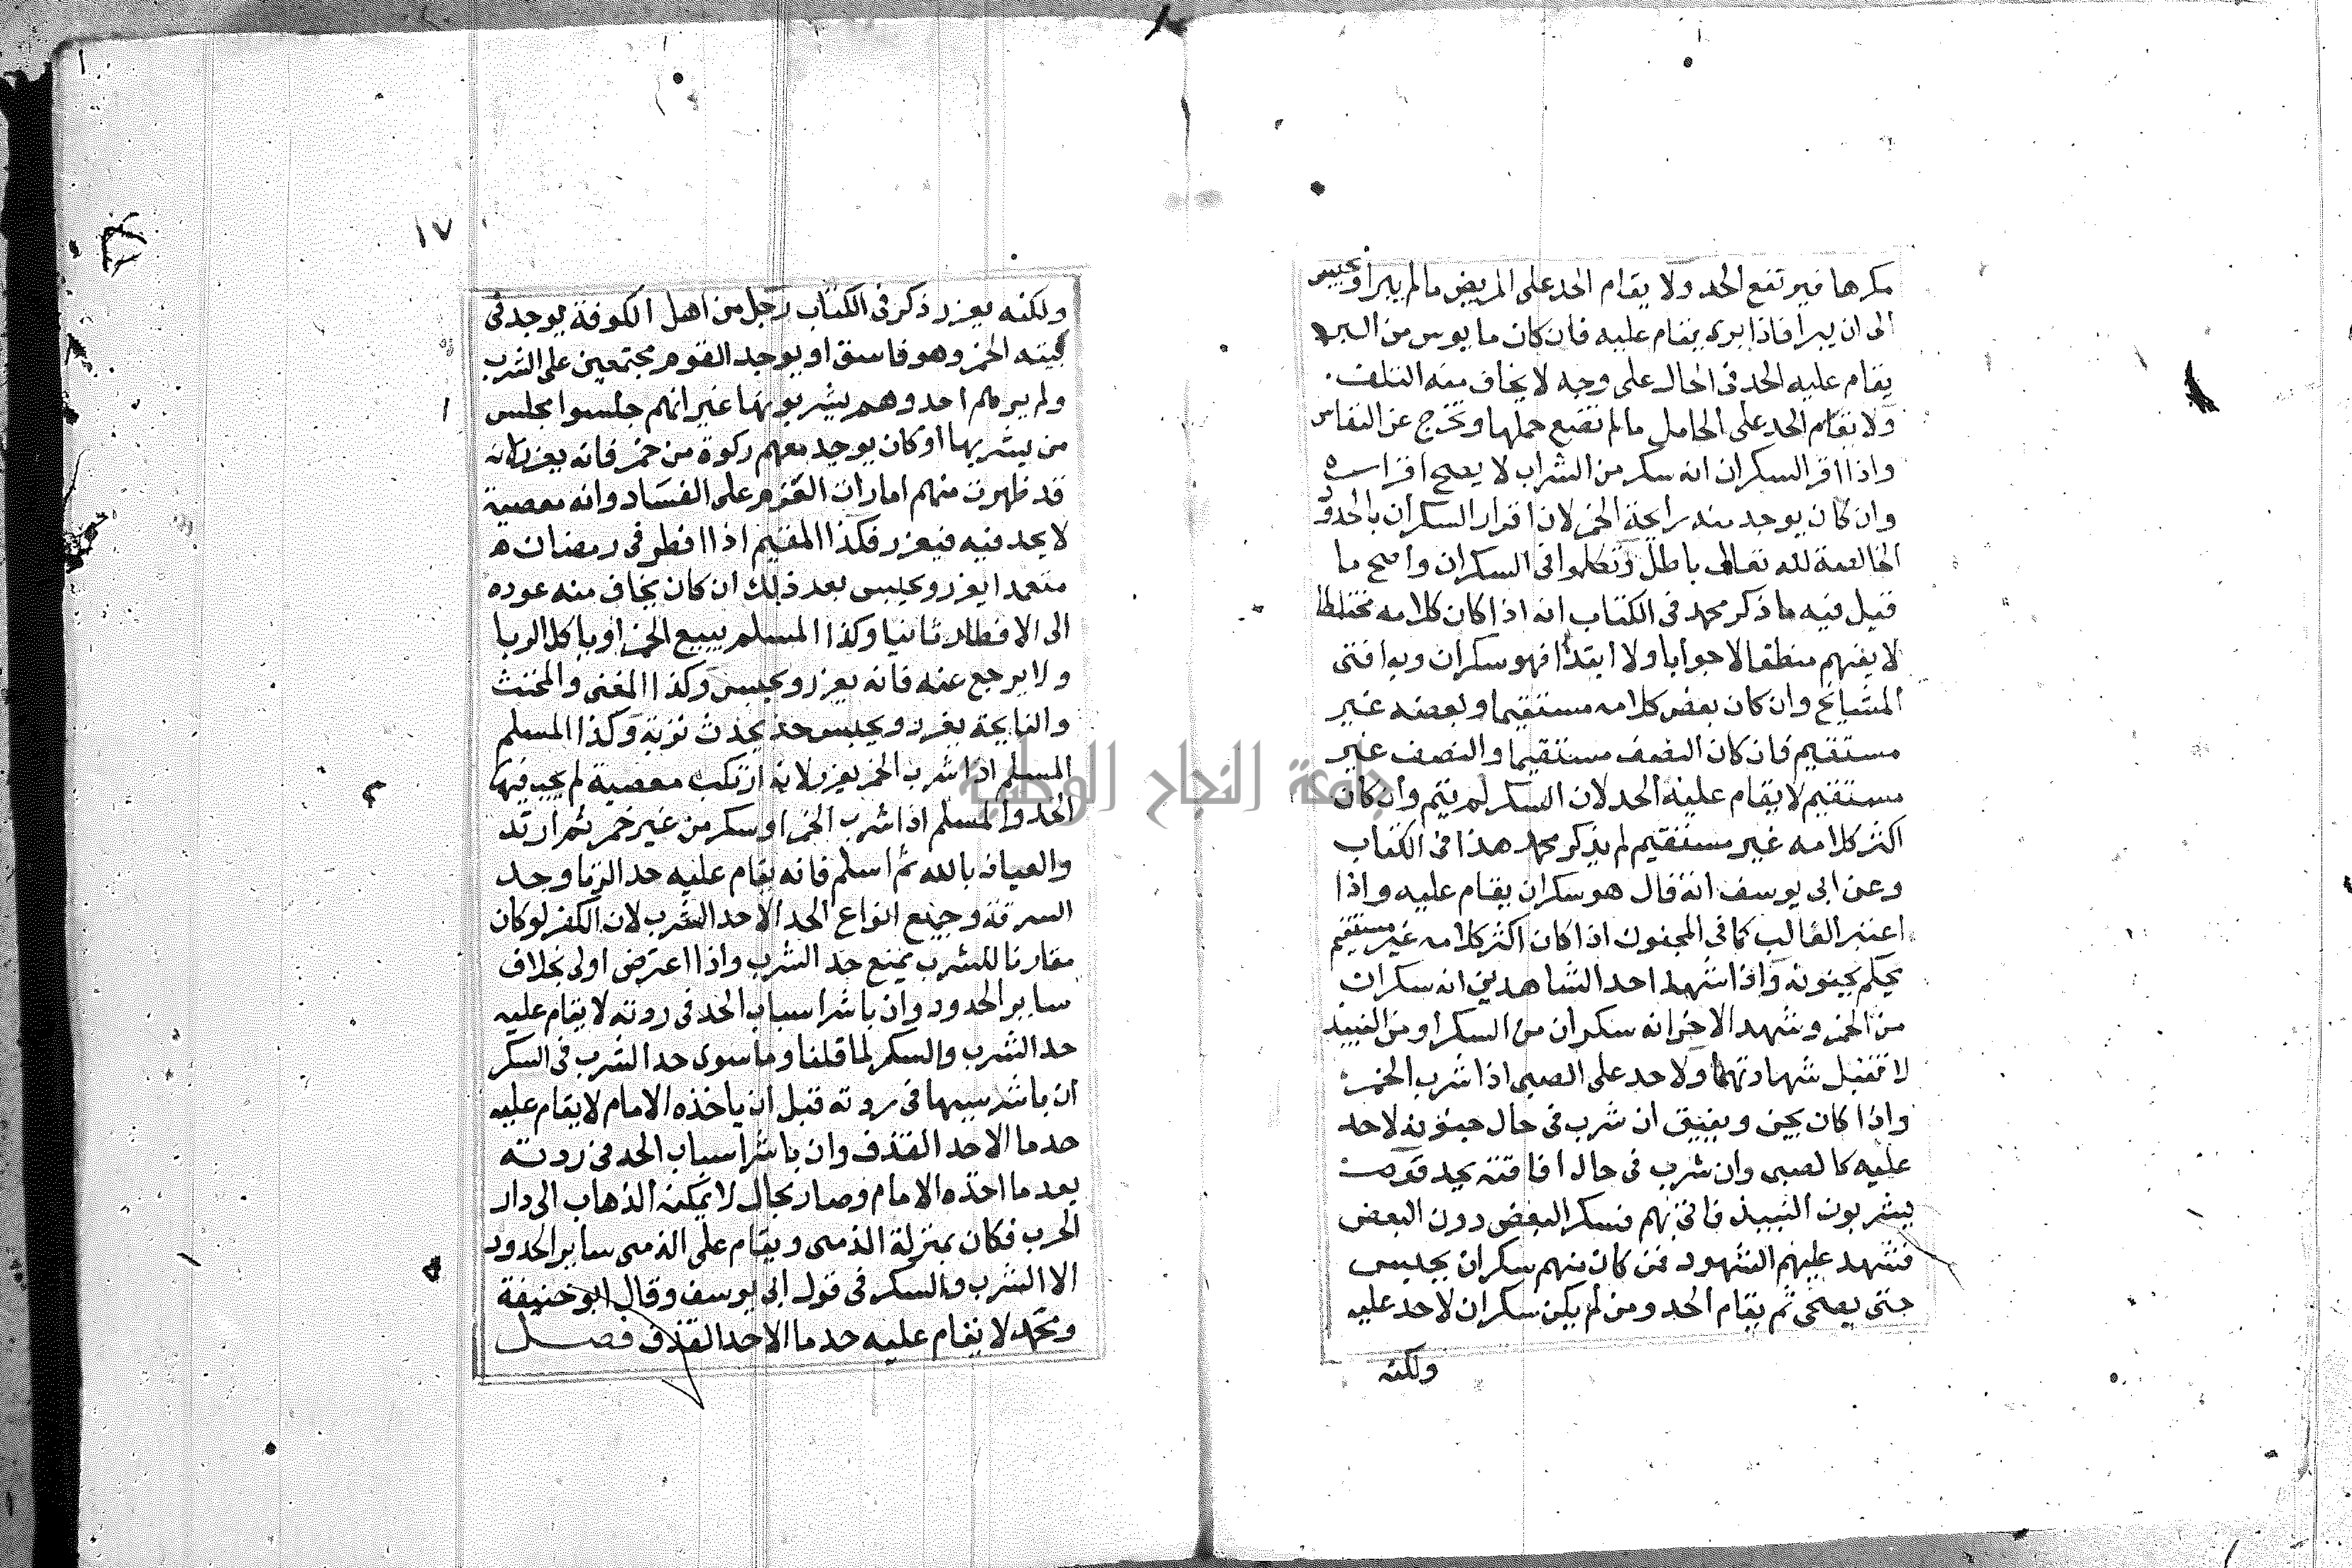 مكرها فيرتفع الحد ولا يقام الحد على المريض ما لم يبرأ ويحبس
الى ان يبرأ فاذا برئ يقام عليه فان كان مايوس من البرء
يقام عليه الحد فى الحال على وجه لا يخاف منه التلف
ولا يقام الحد على الحامل ما لم تضع حملها وتخرج عن النفاس
واذا اقر السكران انه سكر من الشراب لا يصح اقراره
وان كان يوجد منه رايحة الخمر لان اقرار السكران بالحدود
الخالصة لله تعالى باطل وتكلموا فى السكران واصح ما
قيل فيه ما ذكر محمد فى الكتاب انه اذا كان كلامه مختلطا
لا يفهم منطقا لا جوابا ولا ابتداً فهو سكران وبه افتى
المشايخ وان كان بعض كلامه مستقيما وبعضه غير
مستقيم فان كان النصف مستقيما والنصف غير
مستقيم لا يقام عليه الحد لان السكر لم يتم وان كان
اكثر كلامه غير مستقيم لم يذكر محمد هذا فى الكتاب
وعن ابى يوسف انه قال هو سكران يقام عليه واذا
اعتبر الغالب كما فى المجنون اذا كان اكثر كلامه غير مستقيم
يحكم بجنونه واذا شهد احد الشاهدين انه سكران
من الخمر وشهد الاخر انه سكران من السكر او من النبيذ
لا تقبل شهادتهما ولا حد على الصبى اذا شرب الخمر
واذا كان يجن ويفيق ان شرب فى حال جنونه لا حد
عليه كالصبى وان شرب فى حال افاقته يحد قوم
يشربون النبيذ فسكر البعض دون البعض
فشهد عليهم الشهود فمن كان منهم سكران يحبس
حتى يصحى ثم يقام الحد ومن لم يكن سكران لا حد عليه
ولكنه
١٧
ولكنه يعزر ذكر فى الكتاب رجل من اهل الكوفة يوجد فى
بيته الخمر وهو فاسق او يوجد القوم مجتمعين على الشرب
ولم يرهم احد وهم يشربونها غير انهم جلسوا مجلس
من يشربها او كان يوجد معهم ركوة من خمر فانه يعزر لانه
قد ظهرت منهم امارات العزم على الفساد وانه معصية
لا يحد فيه فيعزر فكذا المقيم اذا افطر فى رمضان
متعمدا يعزر ويحبس بعد ذلك ان كان يخاف منه عوده
الى الافطار ثانيا وكذا المسلم يبيع الخمر او ياكل الربا
ولا يرجع عنه فانه يعزر ويحبس وكذا المغنى والمخنث
والنايحة يعزر ويحبس حتى يحدث توبة وكذا المسلم
المسلم اذا شرب الخمر يعزر لانه ارتكب معصية لم يجب فيها
الحد والمسلم اذا شرب الخمر او سكر من غير خمر ثم ارتد
والعياذ بالله ثم اسلم فانه يقام عليه حد الزنا وحد
السرقة وجميع انواع الحد الا حد الشرب لان الكفر لو كان
مقارنا للشرب يمنع حد الشرب واذا اعترض اولى بخلاف
ساير الحدود وان باشر اسباب الحد فى ردته لا يقام عليه
حد الشرب والسكر لما قلنا وما سوى حد الشرب فى السكر
ان باشر سببها فى ردته قبل ان ياخذه الامام لا يقام عليه
حد ما الا حد القذف وان باشر اسباب الحد فى ردته
بعد ما اخذه الامام وصار بحال لا يمكنه الذهاب الى دار
الحرب فكان بمنزلة الذمى ويقام على الذمى ساير الحدود
الا الشرب والسكر فى قول ابى يوسف وقال ابو حنيفة
ومحمد لا يقام عليه حد ما الا حد القذف فصل
جامعة النجاح الوطنية